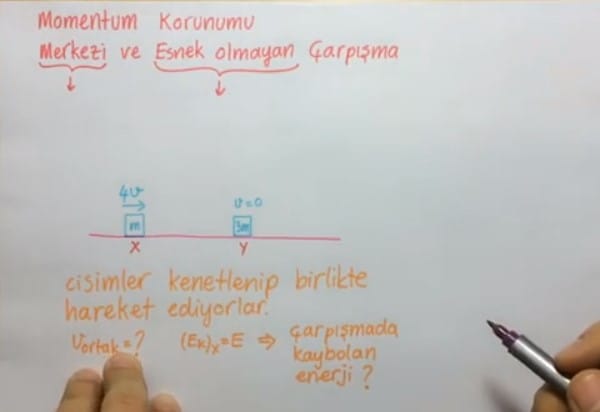 Momentum Korunumu
Merkezi ve Esnek olmayan Çarpışma
4v v=0
m 3m
X Y
cisimler kenetlenip birlikte
hareket ediyorlar.
Vortak=? (Ek)x=E ⇒ çarpışmada
kaybolan
enerji?